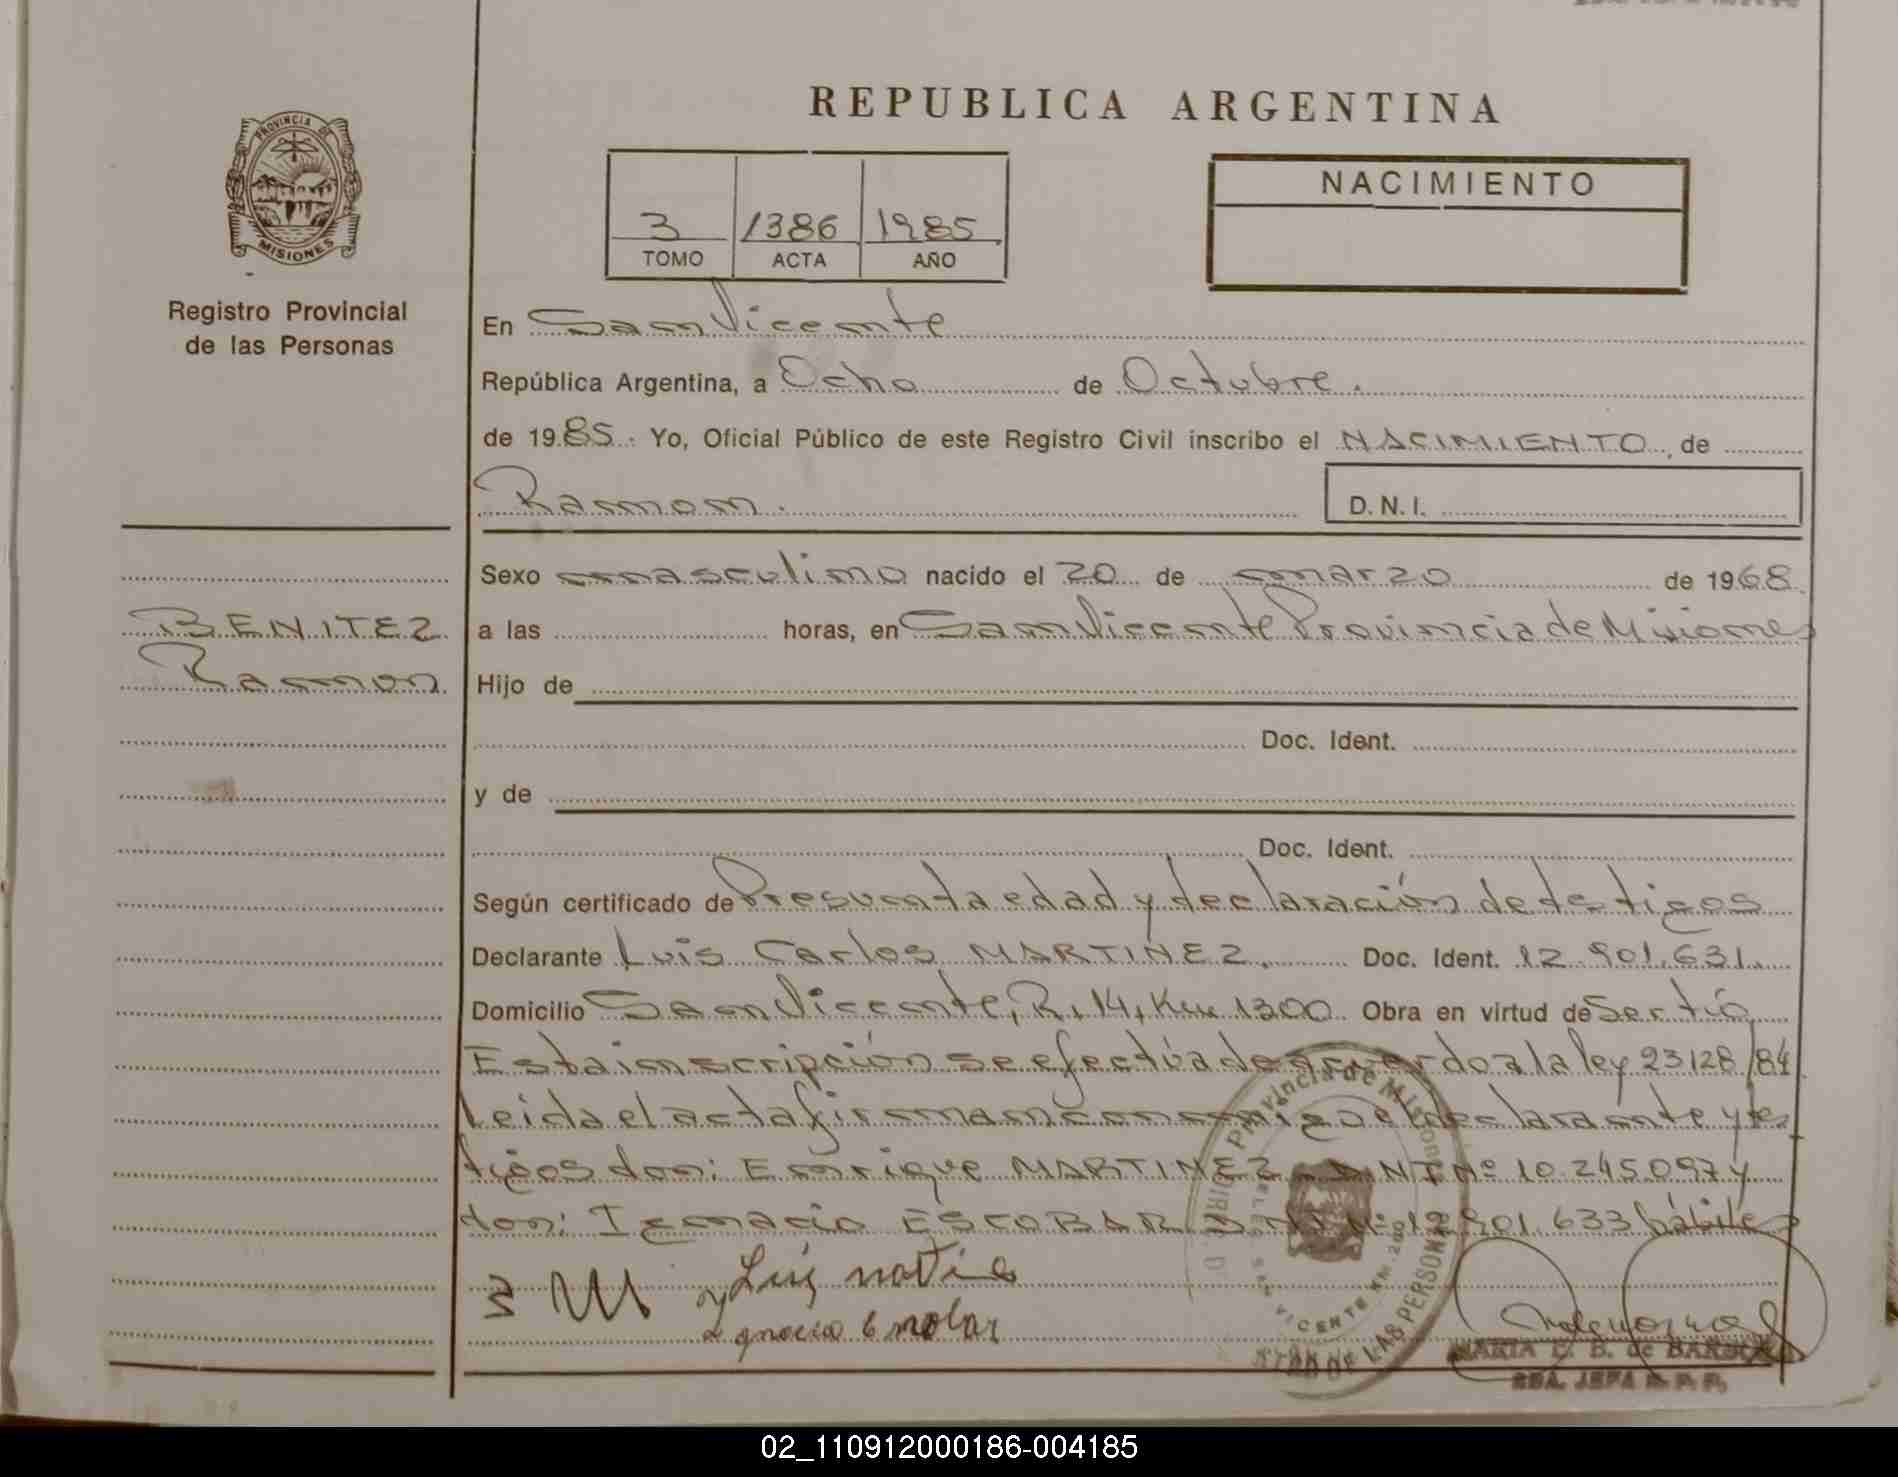 REPUBLICA ARGENTINA
PROVINCIA DE
MISIONES
Registro Provincial
de las Personas
3 1386 1985
TOMO ACTA AÑO
NACIMIENTO
En San Vicente
República Argentina, a Ocho de Octubre.
de 1985. Yo, Oficial Público de este Registro Civil inscribo el NACIMIENTO, de
Ramon. D. N. I.
Sexo masculino nacido el 20 de marzo de 1968
BENITEZ
Ramon
a las horas, en San Vicente Provincia de Misiones
Hijo de
Doc. Ident.
y de
Doc. Ident.
Según certificado de Presunta edad y declaración de testigos
Declarante Luis Carlos MARTINEZ. Doc. Ident. 12.901.631.
Domicilio San Vicente, R. 14, Km 1300 Obra en virtud de
Esta inscripción se efectúa de acuerdo a la ley 23128/84
Leida el acta firman conmigo el declarante y tes
tigos don: Enrique MARTINEZ DNI Nº 10.245.097 y
don: Ignacio ESCOBAR DNI Nº 12.901.633 hábiles
Provincia de Misiones
VICENTE
DE LAS PERSONAS
MARIA E. B. de
2DA. JEFA R. P. P.
02_110912000186-004185